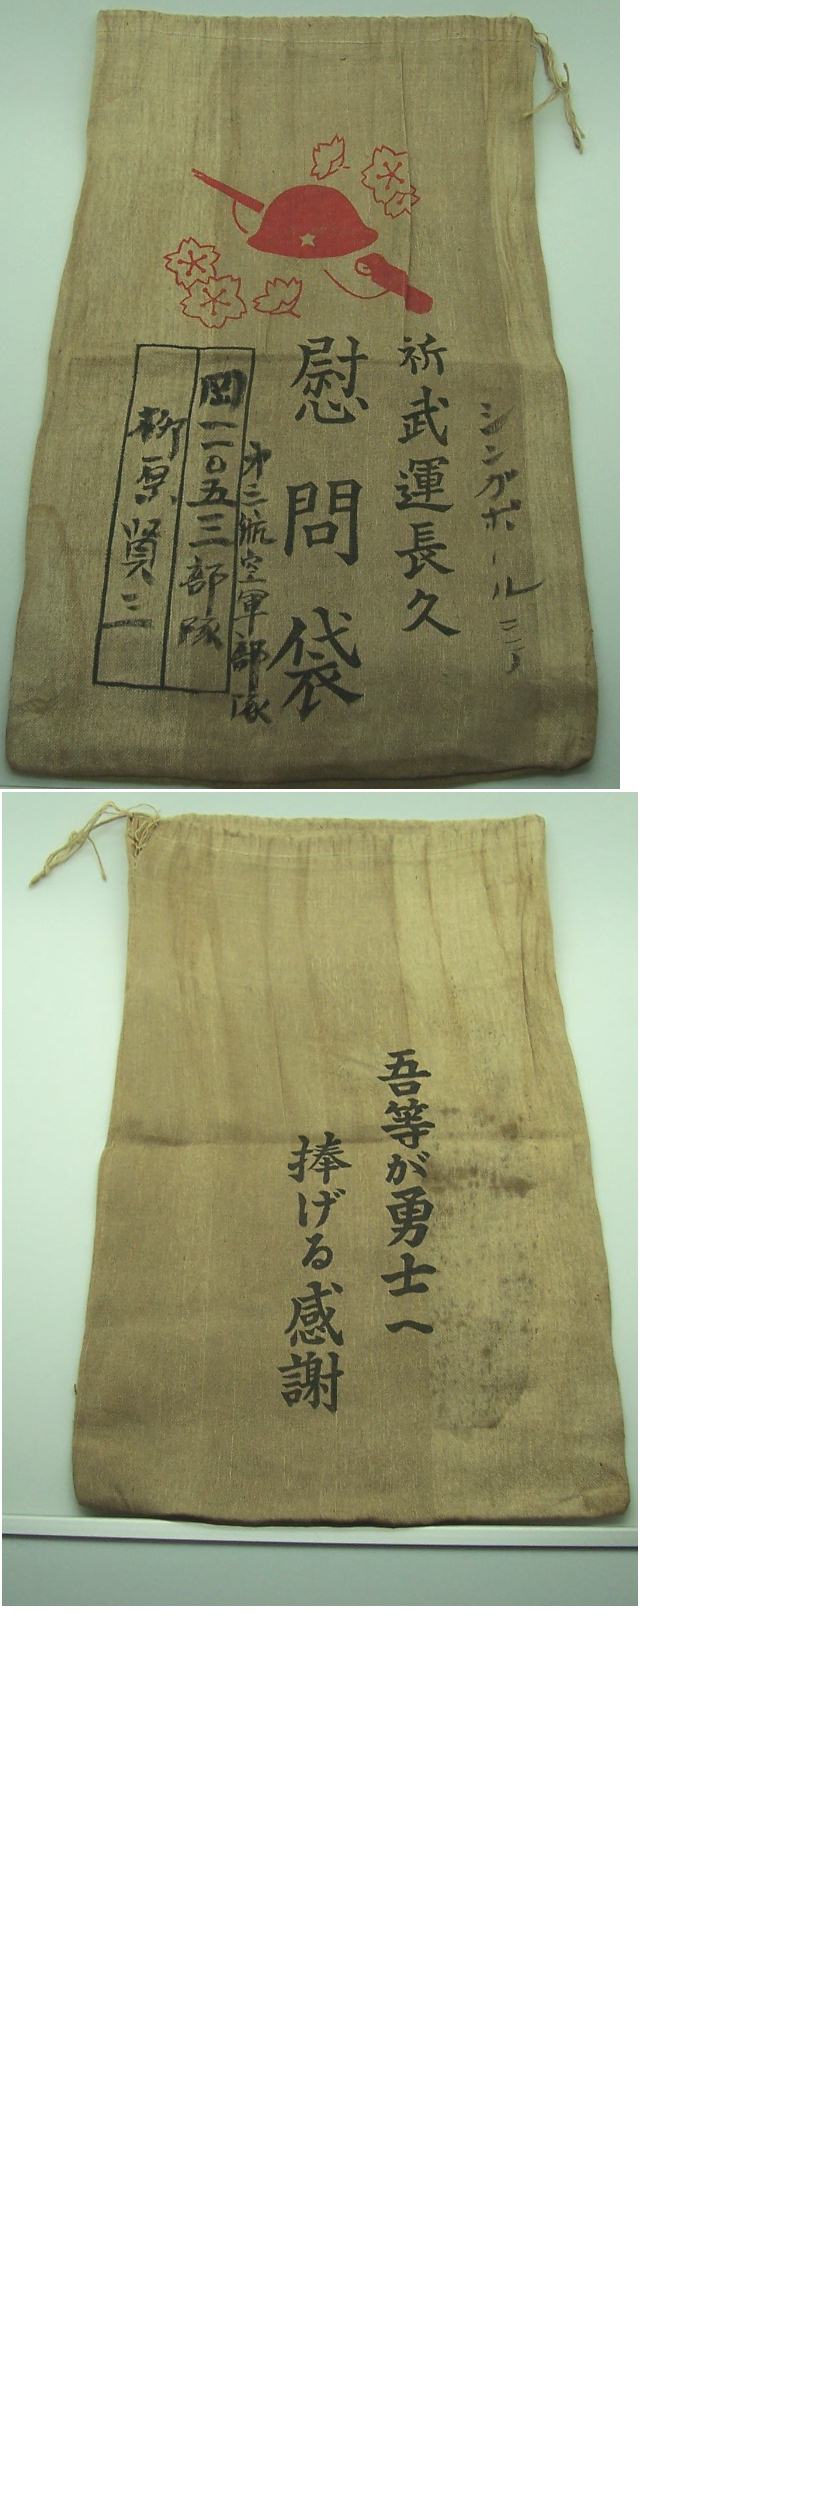 シンガポール
祈武運長久
慰問袋
第三航空軍部隊
岡一一〇五三部隊
柳原賢三
吾等が勇士へ
捧げる感謝